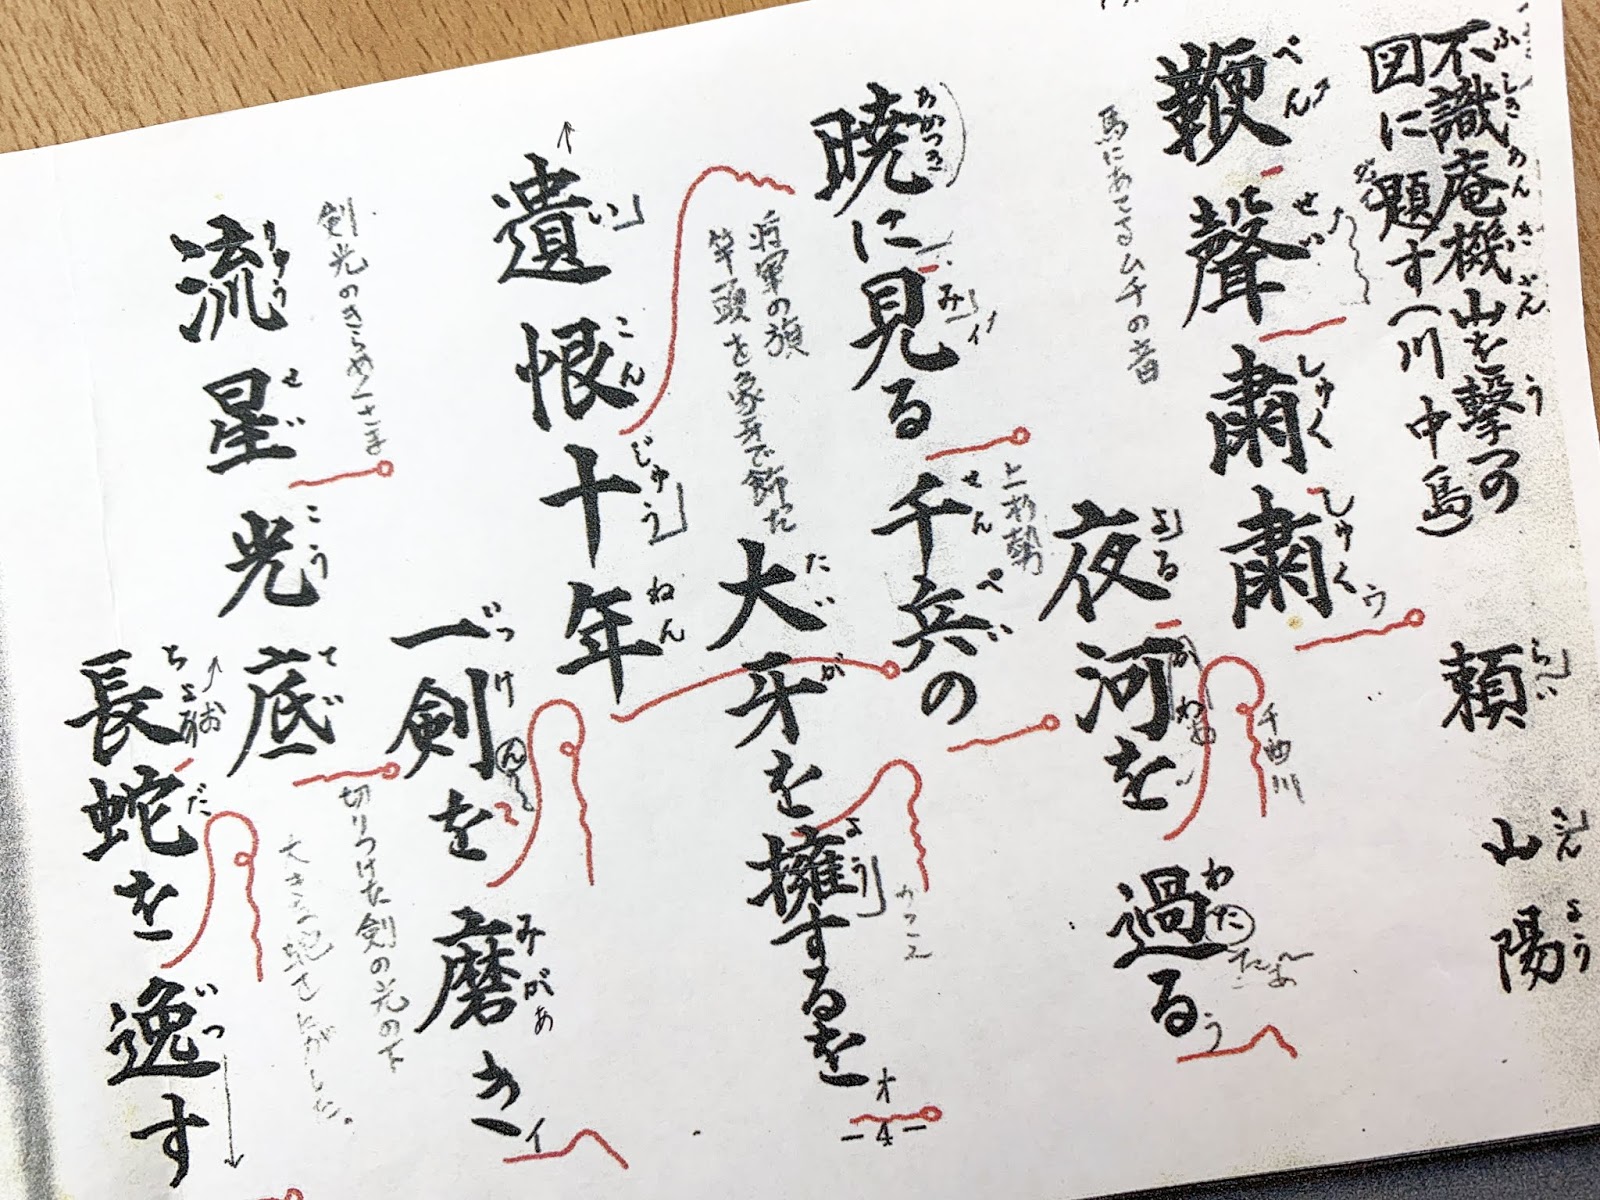 不識庵機山を撃つの
図に題す(川中島)
頼山陽
鞭聲粛粛
夜河を過る
馬にあてるムチの音
千曲川
暁に見る千兵の
上杉勢
大牙を擁するを
将軍の旗
竿頭を象牙で飾た
かこえ
遺恨十年
一剣を磨き
剣光のきらめくさま
流星光底
切りつけた剣の光の下
長蛇を逸す
大きな蛇をにがした。
-4-